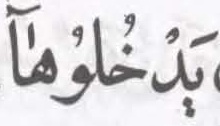 يَدْخُلُوْهَاۤ